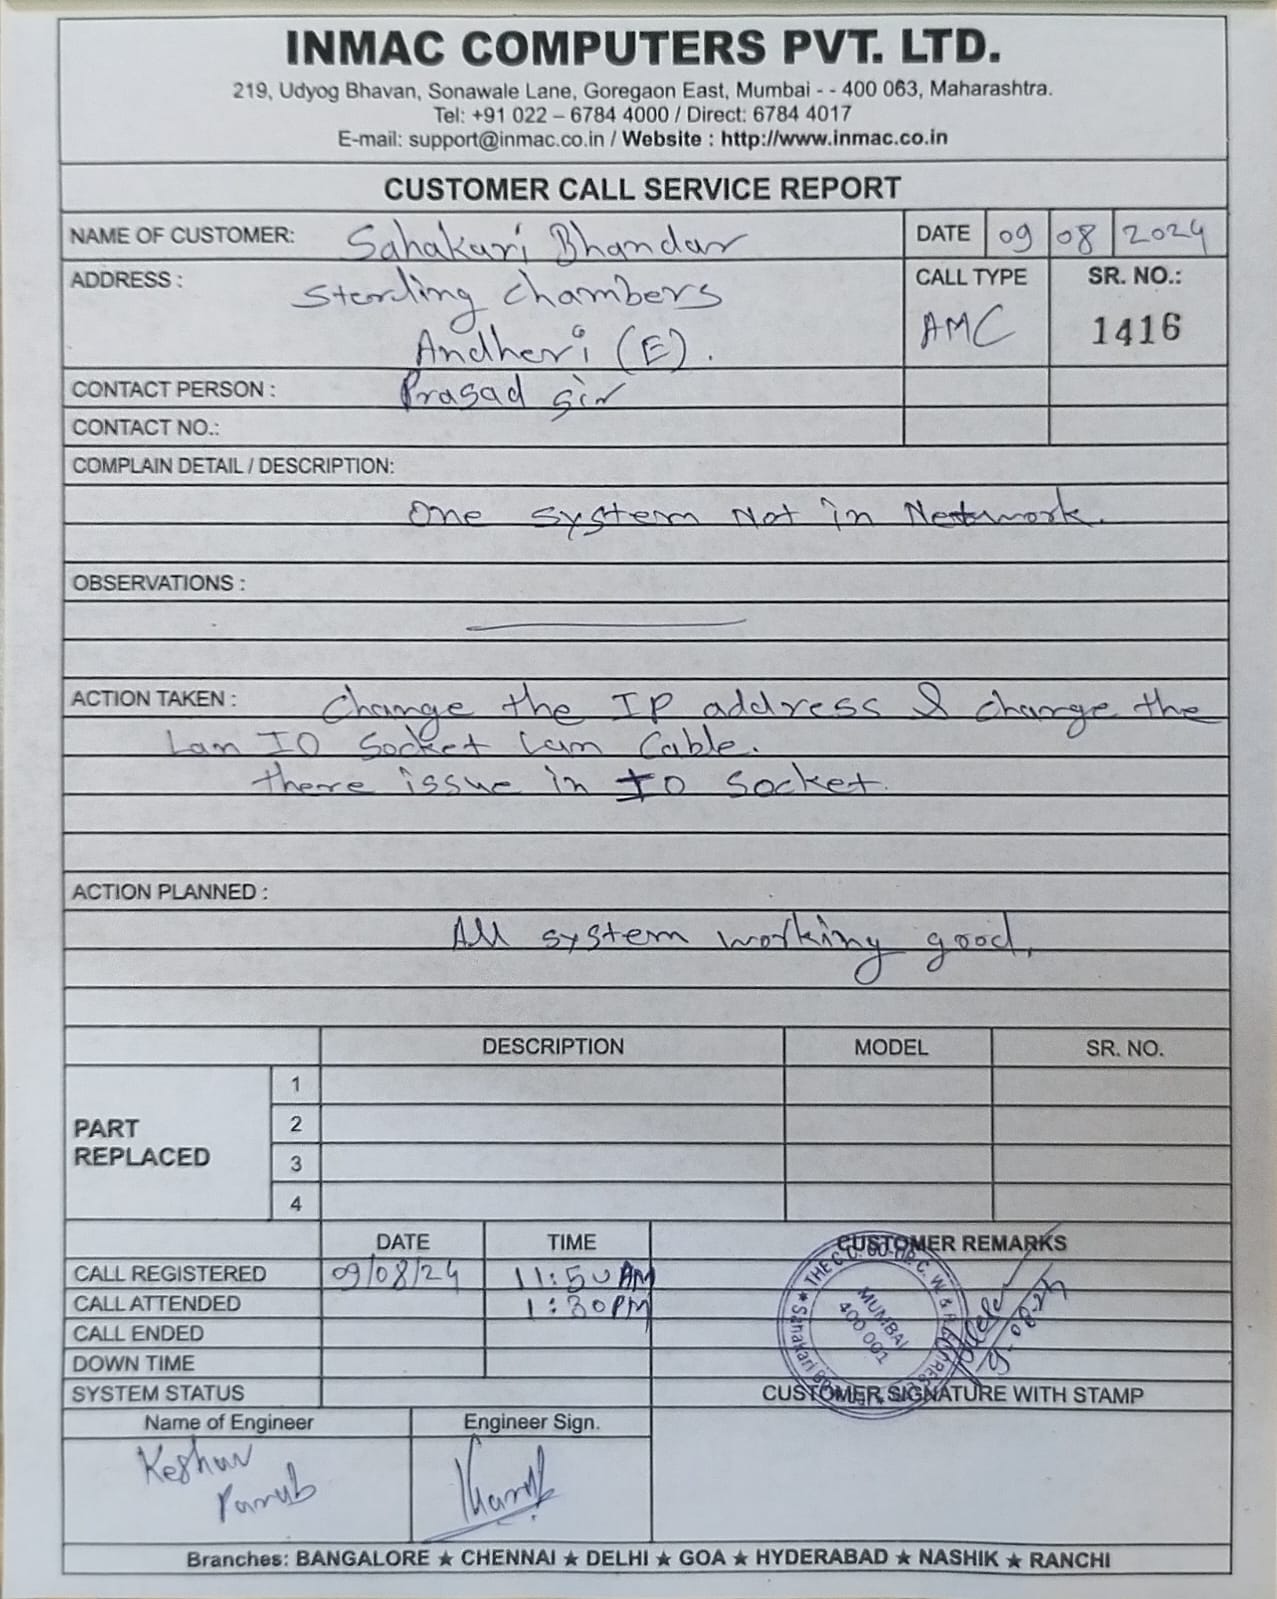 INMAC COMPUTERS PVT. LTD.
219, Udyog Bhavan, Sonawale Lane, Goregaon East, Mumbai - - 400 063, Maharashtra.
Tel: +91 022 – 6784 4000 / Direct: 6784 4017
E-mail: support@inmac.co.in / Website : http://www.inmac.co.in
CUSTOMER CALL SERVICE REPORT
NAME OF CUSTOMER: Sahakari Bhandar DATE 09 08 2024
ADDRESS : Sterling Chambers CALL TYPE SR. NO.:
Andheri (E). AMC 1416
CONTACT PERSON : Prasad sir
CONTACT NO.:
COMPLAIN DETAIL / DESCRIPTION:
One system Not in Network.
OBSERVATIONS :
ACTION TAKEN : Change the IP address & change the
Lan IO Socket Lan Cable.
there issue in IO Socket.
ACTION PLANNED :
All system working good.
DESCRIPTION MODEL SR. NO.
PART REPLACED
1
2
3
4
DATE TIME CUSTOMER REMARKS
CALL REGISTERED 09/08/24 11:50 AM
CALL ATTENDED 1:30PM
CALL ENDED
DOWN TIME
SYSTEM STATUS
MUMBAI
400 001
CUSTOMER SIGNATURE WITH STAMP
Name of Engineer Engineer Sign.
Keshav
Parab
Branches: BANGALORE ★ CHENNAI ★ DELHI ★ GOA ★ HYDERABAD ★ NASHIK ★ RANCHI